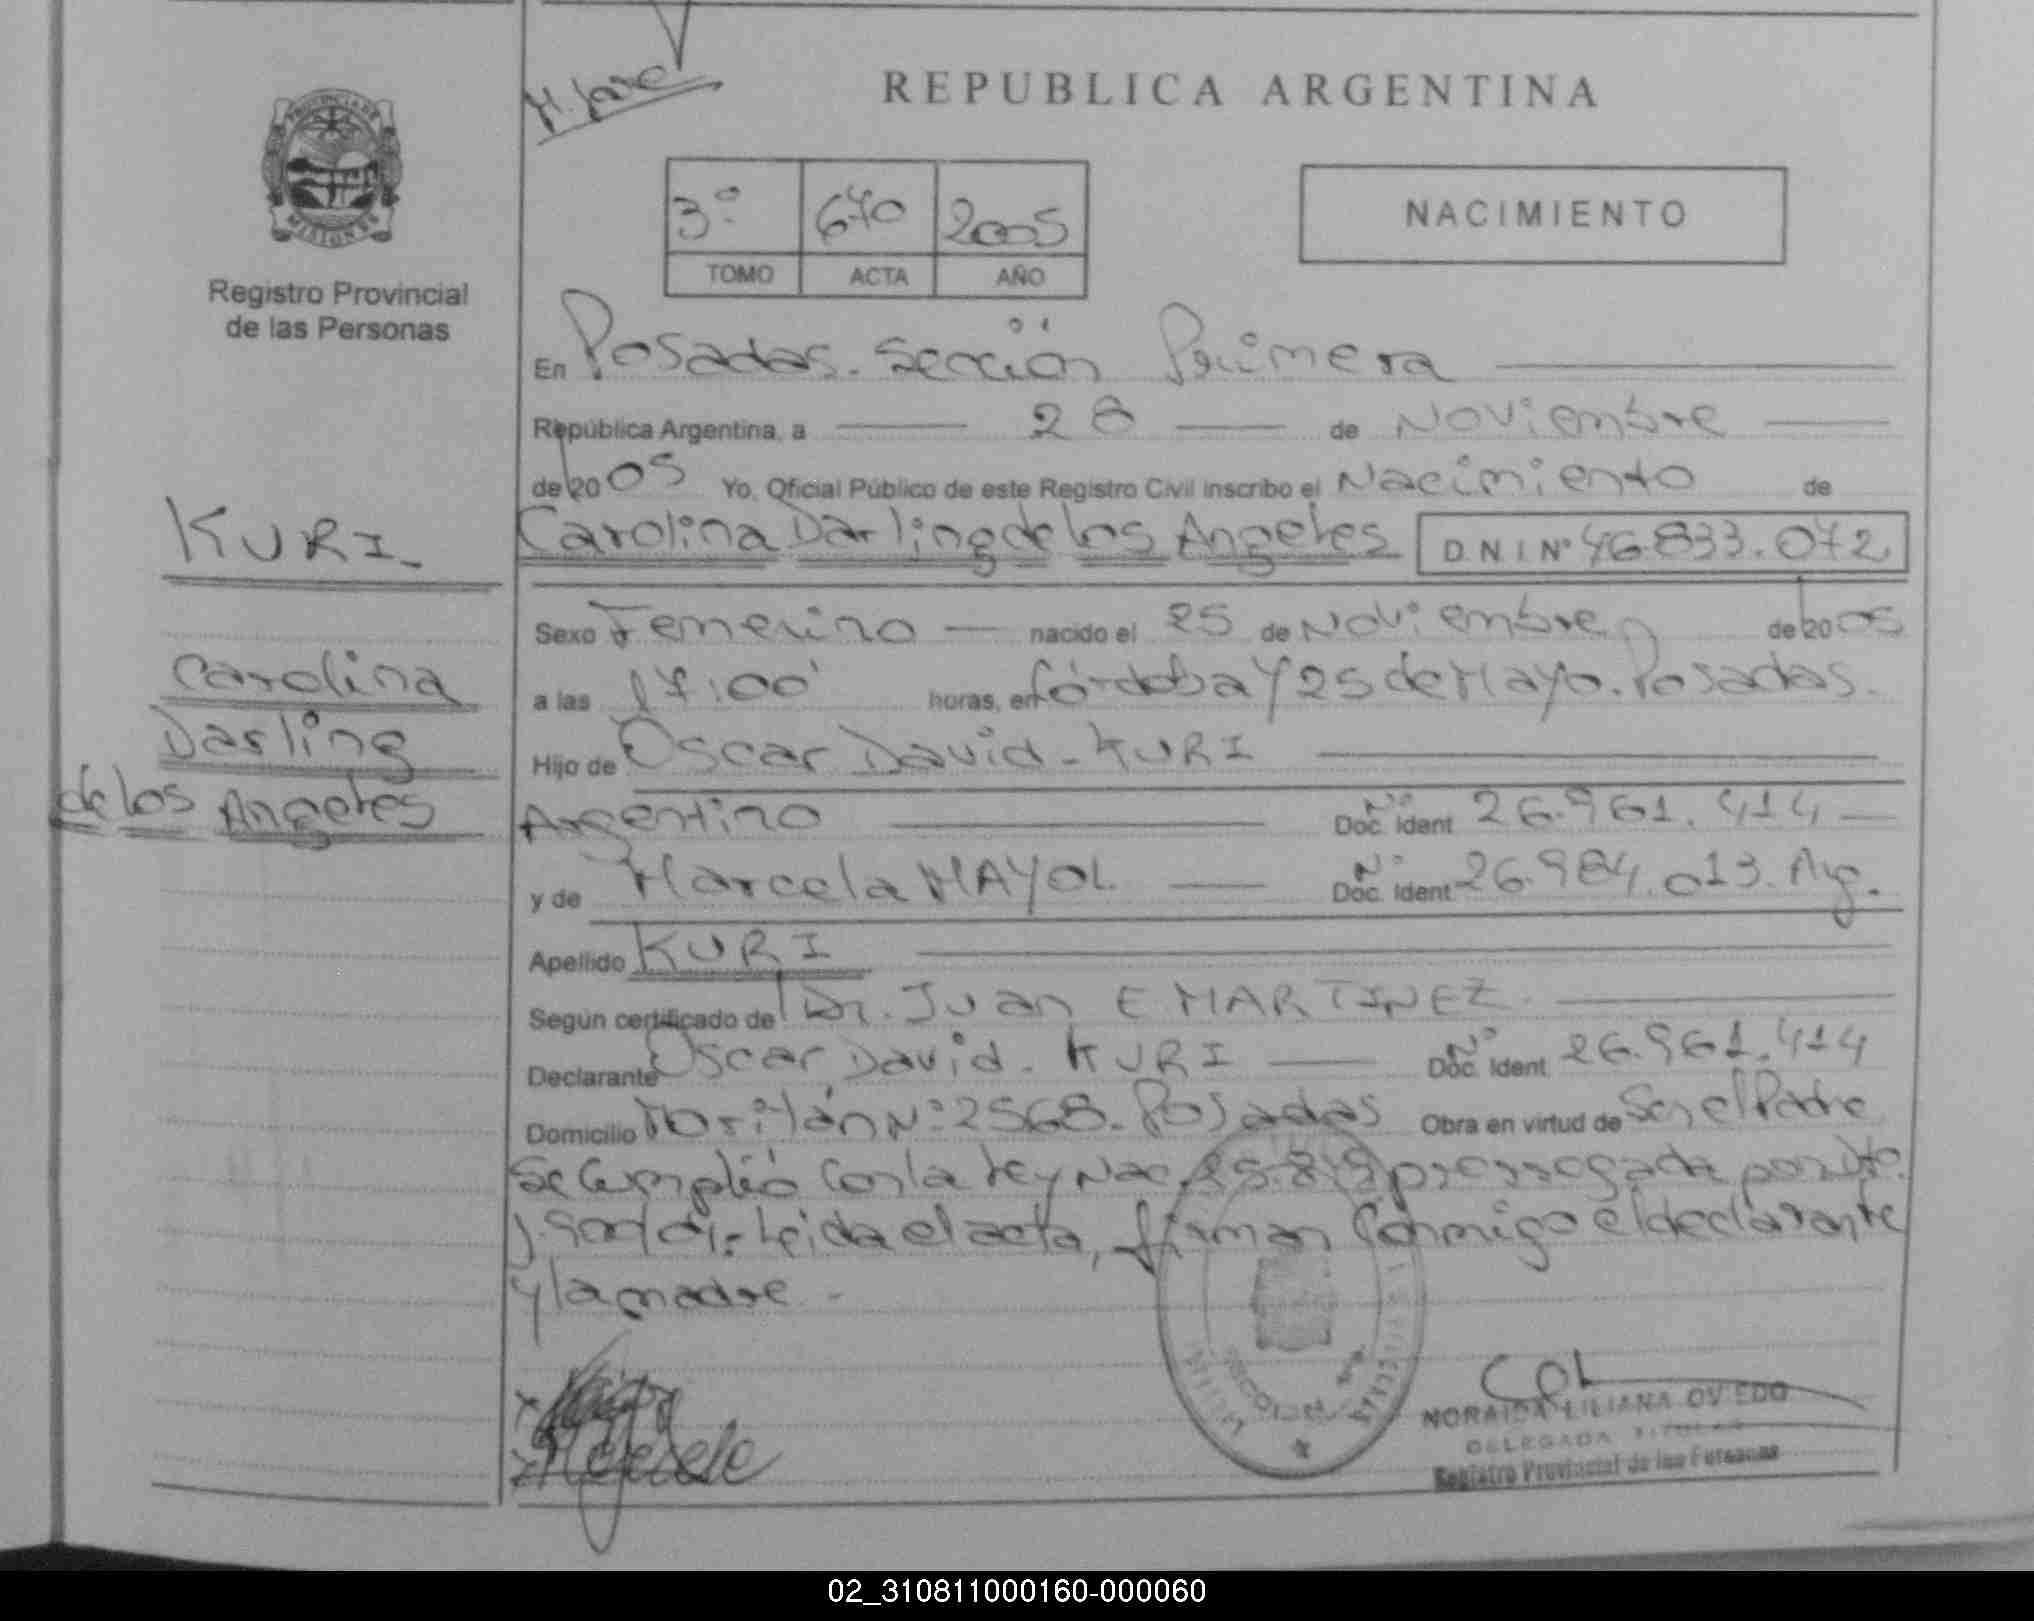 REPUBLICA ARGENTINA
PROVINCIA DE
MISIONES
Registro Provincial
de las Personas
3º 670 2005
TOMO ACTA AÑO
NACIMIENTO
En Posadas. Sección Primera
República Argentina, a 28 de Noviembre
de 2005 Yo, Oficial Público de este Registro Civil inscribo el Nacimiento de
KURI
Carolina Darling de los Angeles D.N.I. Nº 46.833.072
Sexo Femenino nacido el 25 de Noviembre de 2005
Carolina
a las 17:00 horas, en Córdoba y 25 de Mayo. Posadas.
Darling
Hijo de Oscar David KURI
de los Angeles
Argentino Nº Doc. Ident 26.961.414
y de Marcela MAYOL Nº Doc. Ident 26.984.013. Arg.
Apellido KURI
Según certificado de Dr. Juan E MARTINEZ
Declarante Oscar David KURI Nº Doc. Ident. 26.961.414
Domicilio Nº 2568. Posadas Obra en virtud de Ser el Padre
Se Cumplió Con la Ley Nac. 25.819 prorrogada por Dto.
Leida el acta, firman Conmigo el declarante
y la madre
NORAIDA LILIANA OVIEDO
DELEGADA TITULAR
Registro Provincial de las Personas
02_310811000160-000060